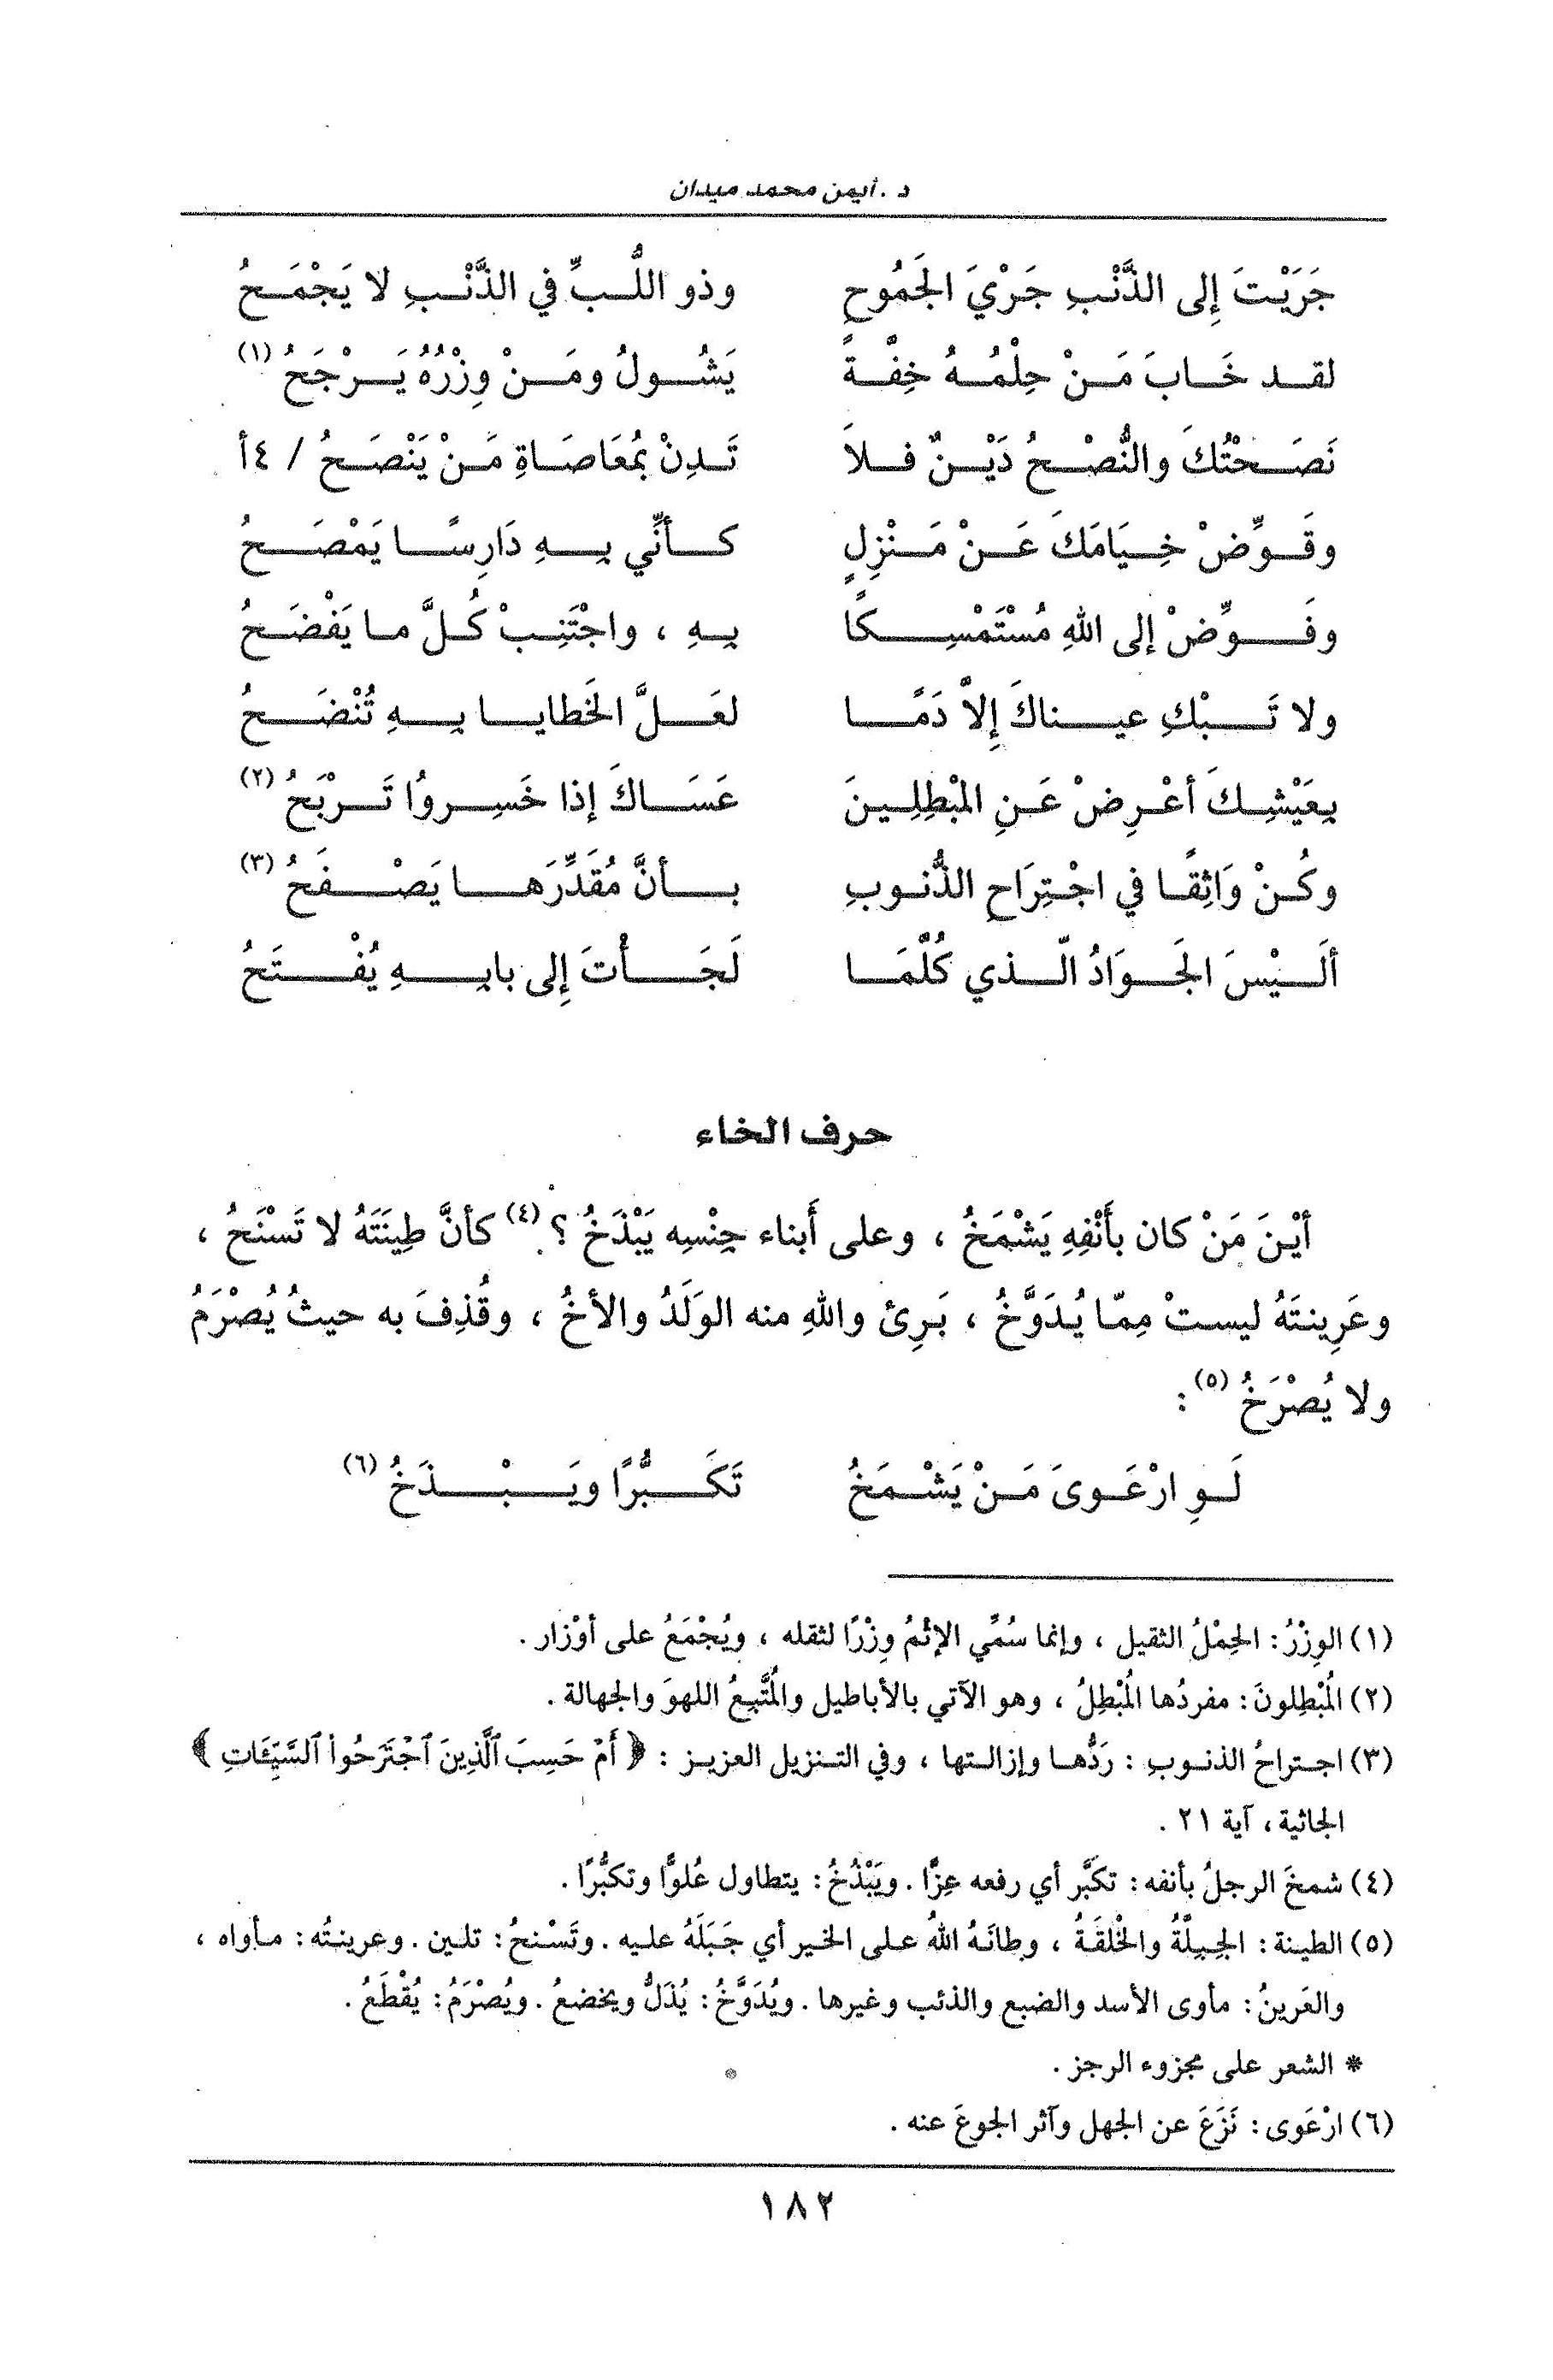 د . أيمن محمد ميدان
جَرَيْتَ إِلى الذَّنْبِ جَرْيَ الجَمُوحِ وذو اللُّبِّ في الذَّنْبِ لا يَجْمَحُ
لقد خَابَ مَنْ حِلْمُهُ خِفَّةً يَشُولُ ومَنْ وِزْرُهُ يَرْجَحُ (١)
نَصَحْتُكَ والنُّصْحُ دَيْنٌ فلاَ تَدِنْ بمُعَاصَاةِ مَنْ يَنْصَحُ / ٤أ
وقَوِّضْ خِيَامَكَ عَنْ مَنْزِلٍ كأنِّي بِهِ دَارِسًا يَمْصَحُ
وفَوِّضْ إلى اللهِ مُسْتَمْسِكًا بِهِ ، واجْتَنِبْ كُلَّ ما يَفْضَحُ
ولا تَبْكِ عيناكَ إِلاَّ دَمًا لعَلَّ الخَطايا بِهِ تُنْضَحُ
بِعَيْشِكَ أعْرِضْ عَنِ المْبْطِلِينَ عَسَاكَ إذا خَسِروُا تَرْبَحُ (٢)
وكُنْ وَاثِقًا في اجْتِرَاحِ الذُّنوبِ بأنَّ مُقَدِّرَها يَصْفَحُ (٣)
ألَيْسَ الجَوَادُ الّذي كُلَّمَا لَجَأْتَ إِلى بابِهِ يُفْتَحُ
حرف الخاء
أيْنَ مَنْ كان بأَنْفِهِ يَشْمَخُ ، وعلى أَبناء جِنْسِه يَبْذَخُ ؟ (٤) كأنَّ طِينَتَهُ لا تَسْنَحُ ،
وعَرِينتَهُ ليستْ مِمّا يُدَوَّخُ ، بَرِئ واللهِ منه الوَلَدُ والأخُ ، وقُذِفَ به حيثُ يُصْرَمُ
ولا يُصْرَخُ (٥) :
لَوِ ارْعَوىَ مَنْ يَشْمَخُ تَكَبُّرًا ويَبْذَخُ (٦)
(١) الوِزْرُ : الحِمْلُ الثقيل ، وإنما سُمِّي الإثْمُ وِزْرًا لثقله ، ويُجْمَعُ على أوْزار .
(٢) المُبْطِلونَ : مفردُها المُبْطِلُ ، وهو الآتي بالأباطيل والمُتَّبِعُ اللهوَ والجهالة .
(٣) اجتراحُ الذنوبِ : رَدُّها وإزالتها ، وفي التنزيل العزيز : ﴿ أَمْ حَسِبَ ٱلَّذِينَ ٱجْتَرَحُواْ ٱلسَّيِّـَٔاتِ ﴾
الجاثية ، آية ٢١ .
(٤) شمخَ الرجلُ بأنفه : تكبَّر أي رفعه عِزًّا . ويَبْذُخُ : يتطاول عُلوًّا وتكبُّرًا .
(٥) الطينة : الجِبِلَّةُ والخْلقَةُ ، وطانَهُ اللهُ على الخير أي جَبَلَهُ عليه . وتَسْنحُ : تلين . وعرينتُه : مأواه ،
والعَرينُ : مأوى الأسد والضبع والذئب وغيرها . ويُدَوَّخُ : يُذَلُّ ويخضعُ . ويُصْرَمُ : يُقْطَعُ .
* الشعر على مجزوء الرجز .
(٦) ارْعَوى : نَزَعَ عن الجهل وآثر الجوعَ عنه .
١٨٢